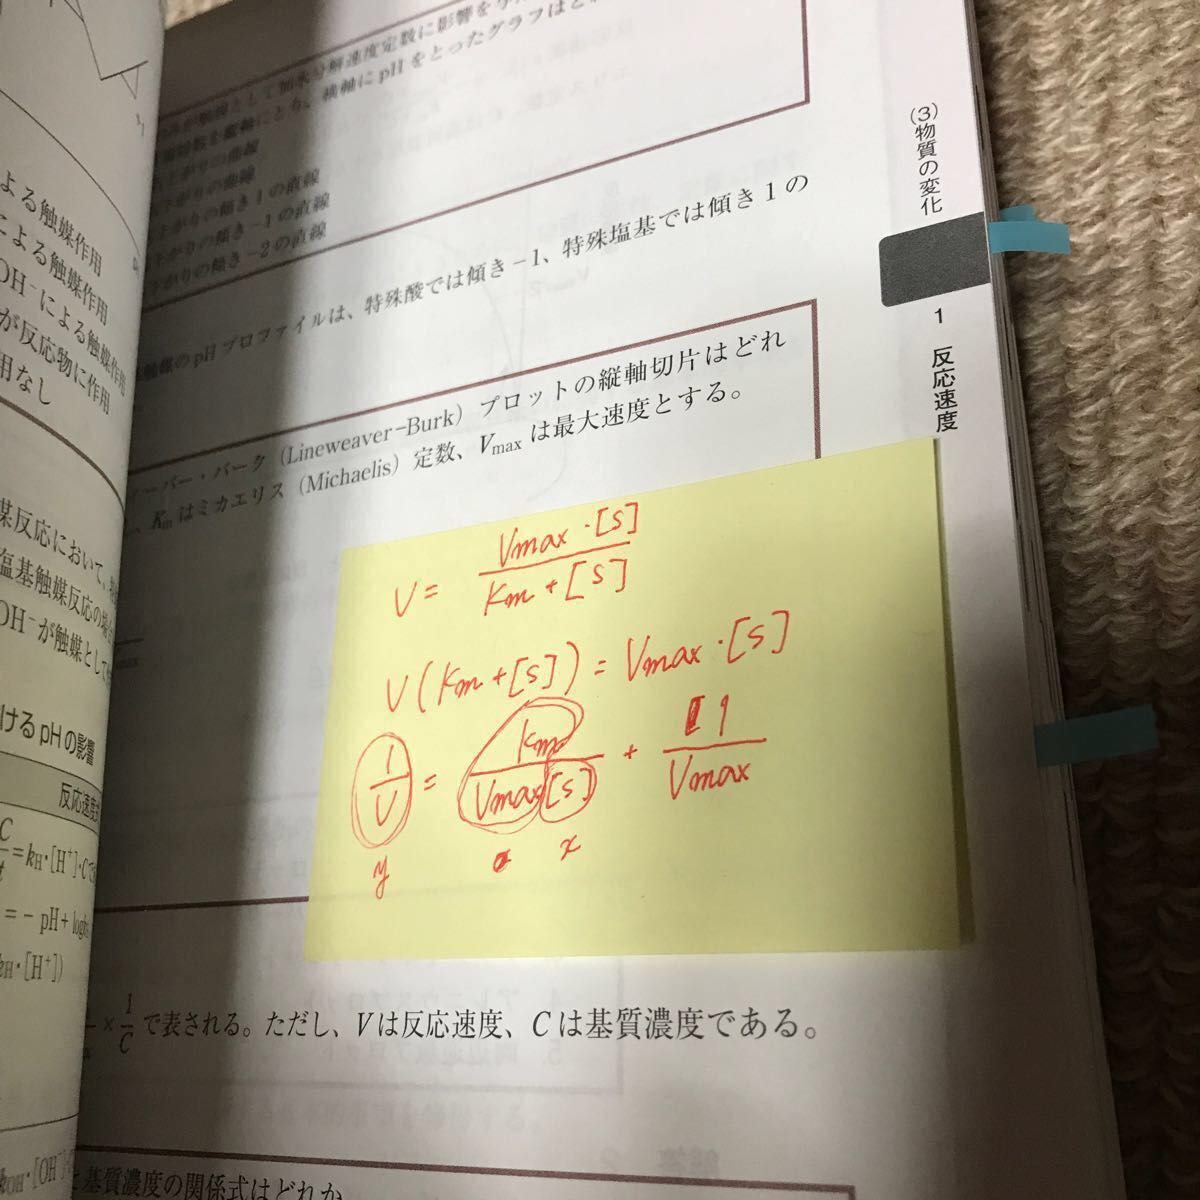 よる触媒作用
による触媒作用
OH⁻による触媒作用
が反応物に作用
用なし
媒反応において、
塩基触媒反応の場合
OH⁻が触媒として
けるpHの影響
反応速度
=kH・[H⁺]・C
= − pH + log
kH・[H⁺])
kOH・[OH⁻]
加水分解速度定数に影響を
縦軸にとり、横軸にpHをとったグラフは
上がりの曲線
下がりの曲線
上がりの傾き1の直線
下がりの傾き−1の直線
下がりの傾き−2の直線
のpHプロファイルは、特殊酸では傾き−1、特殊塩基では傾き1の
ーバー・バーク (Lineweaver-Burk) プロットの縦軸切片はどれ
、Kmはミカエリス (Michaelis) 定数、Vmaxは最大速度とする。
V = Vmax・[S] / Km + [S]
V (Km + [S]) = Vmax・[S]
1/V = Km / Vmax[S] + 1 / Vmax
y x
× 1/C で表される。ただし、Vは反応速度、Cは基質濃度である。
と基質濃度の関係式はどれか
(3)物質の変化
1 反応速度